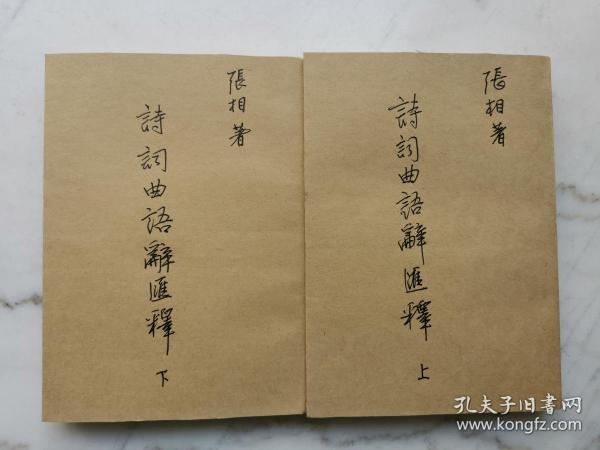 張相著
詩詞曲語辭匯釋
下
張相著
詩詞曲語辭匯釋
上
孔夫子旧書网
www.kongfz.com